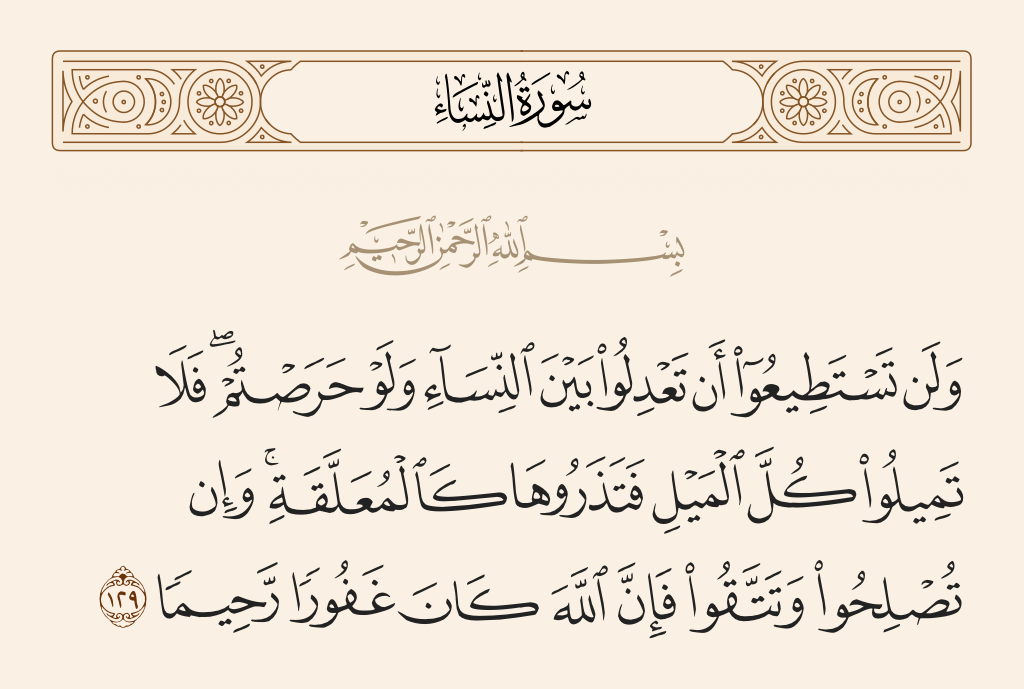 سُورَةُ النِّسَاءِ
بِسْمِ ٱللَّهِ ٱلرَّحْمَٰنِ ٱلرَّحِيمِ
وَلَن تَسْتَطِيعُوٓا۟ أَن تَعْدِلُوا۟ بَيْنَ ٱلنِّسَآءِ وَلَوْ حَرَصْتُمْ ۖ فَلَا
تَمِيلُوا۟ كُلَّ ٱلْمَيْلِ فَتَذَرُوهَا كَٱلْمُعَلَّقَةِ ۚ وَإِن
تُصْلِحُوا۟ وَتَتَّقُوا۟ فَإِنَّ ٱللَّهَ كَانَ غَفُورًا رَّحِيمًا ١٢٩